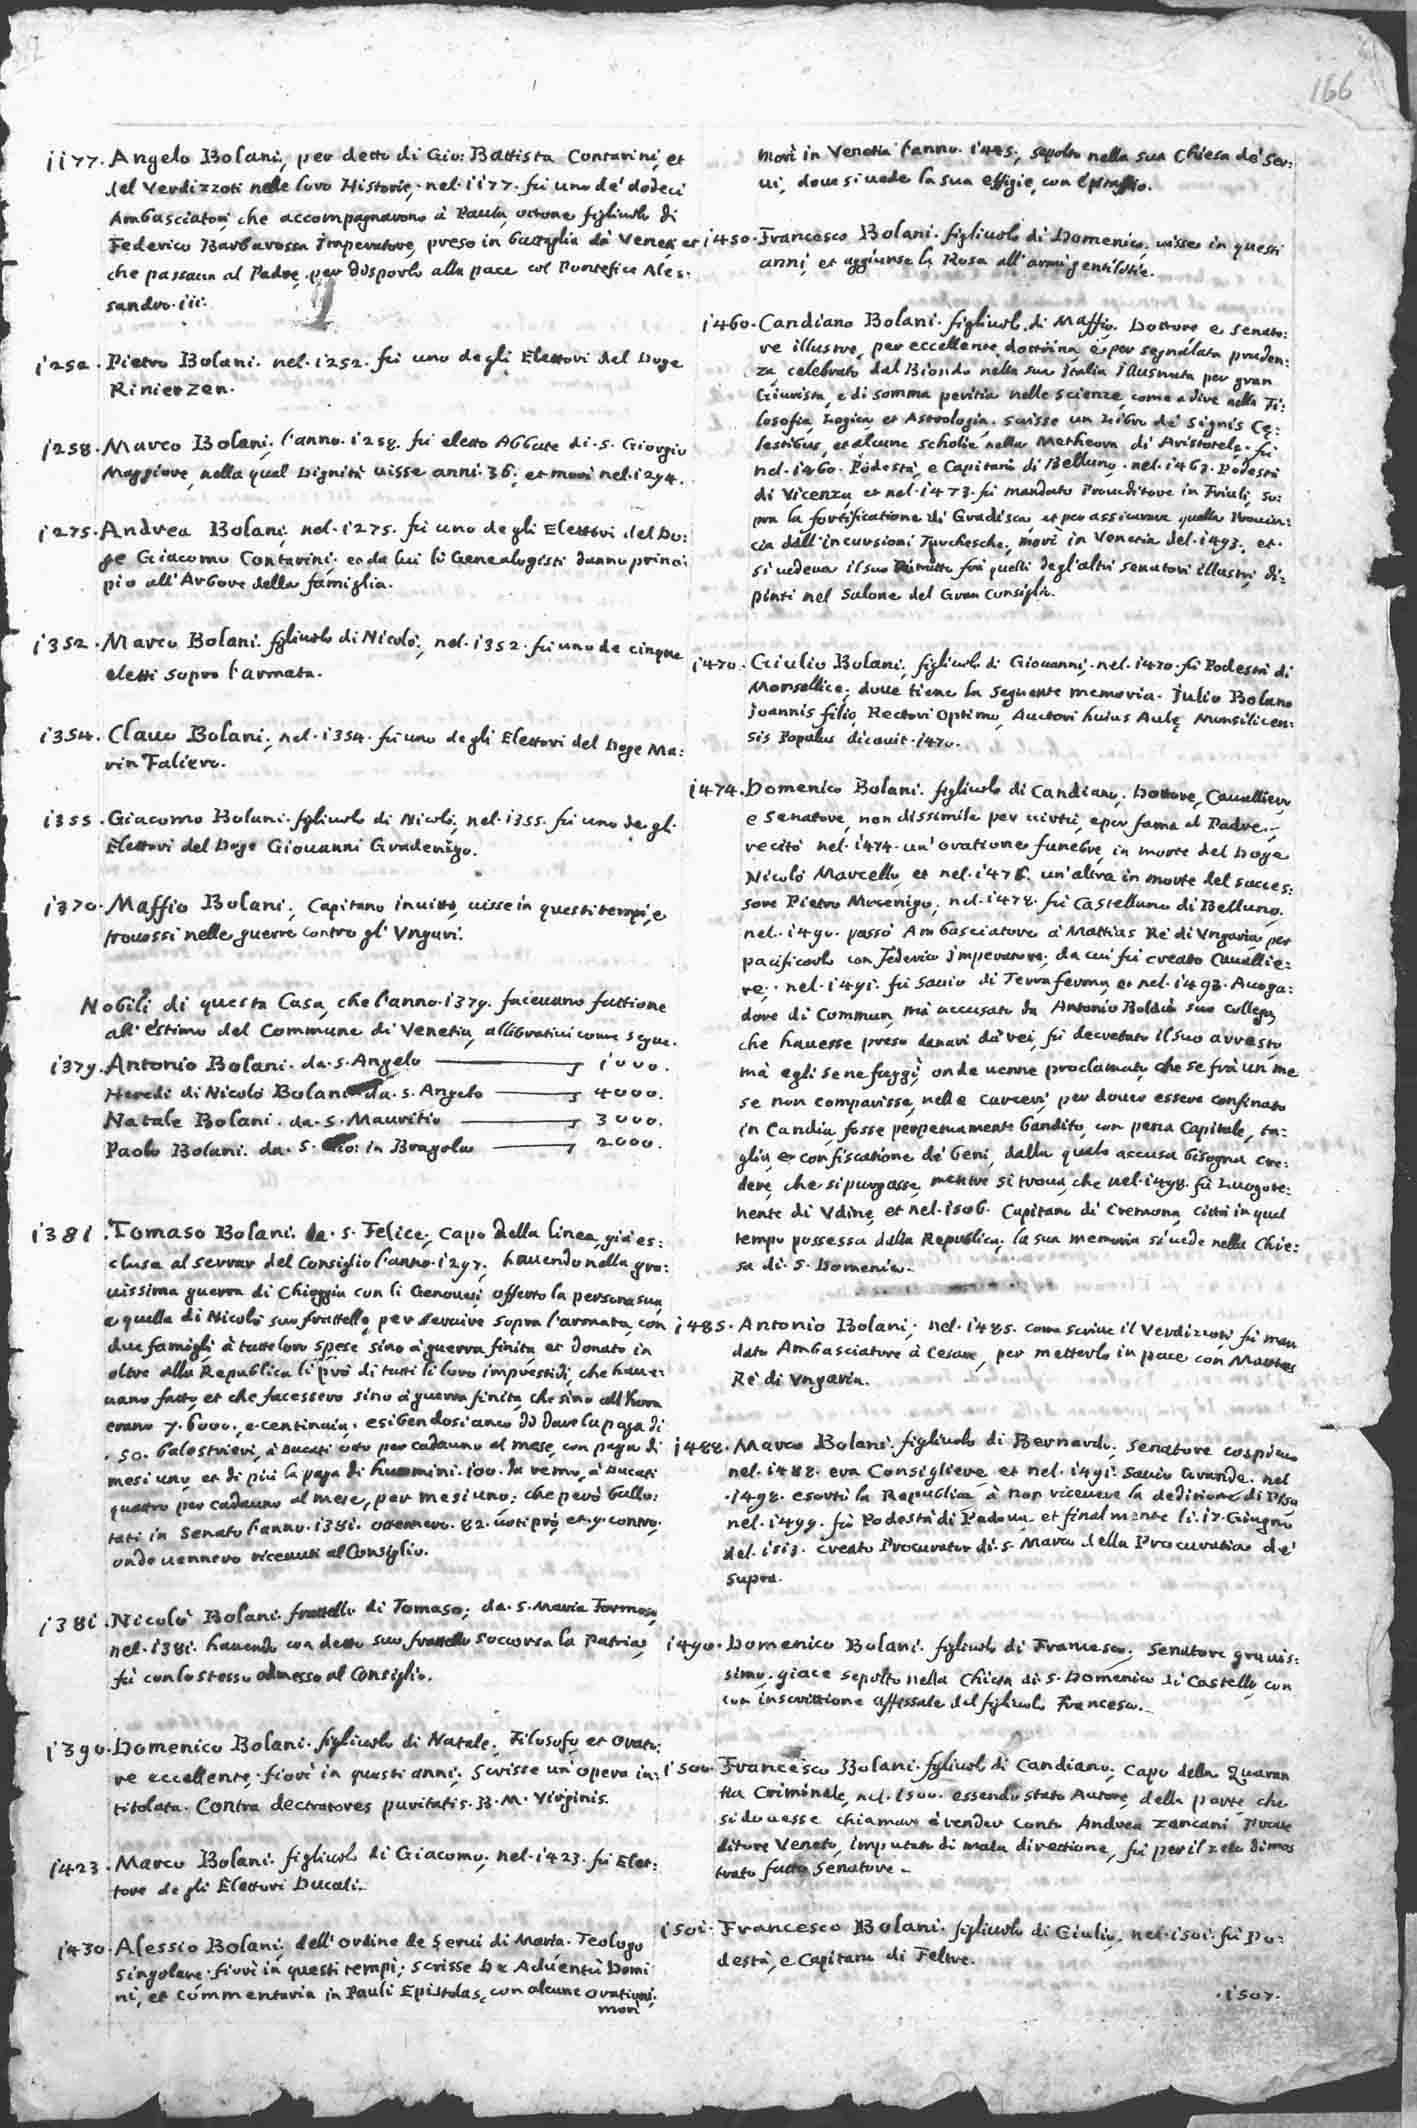 166
1177. Angelo Bolani, per detto di Gio: Battista Contarini, et
del Verdizzoti nelle loro Historie, nel. 1177. fù uno de' dodeci
Ambasciatori che accompagnavono à Papia, ottone figliuolo di
Federico Barbarossa Imperatore, preso in battaglia da Veneti, et
che passava al Padre, per disporlo alla pace col Pontefice Ales:
sandro. iii.
1252. Pietro Bolani. nel. 1252. fù uno degli Elettori del Doge
Rinier Zen.
1258. Marco Bolani, l'anno. 1258. fù eletto Abbate di. S. Giorgio
Maggiore, nella qual Dignità uisse anni. 36. et morì nel. 1294.
1275. Andrea Bolani, nel. 1275. fù uno degli Elettori del Do:
ge Giacomo Contarini. et da lui li Genealogisti danno princi
pio all'Arbore della famiglia.
1352. Marco Bolani. figliuolo di Nicolò, nel. 1352. fù uno de cinque
eletti sopra l'armata.
1354. Clauo Bolani, nel. 1354. fù uno degli Elettori del Doge Ma:
rin Faliero.
1355. Giacomo Bolani. figliuolo di Nicolò, nel. 1355. fù uno de gli
Elettori del Doge Giouanni Gradenigo.
1370. Maffio Bolani, Capitano inuitto, uisse in questi tempi, e
trouossi nelle guerre contro gl'Vngari.
Nobili di questa Casa, che l'anno. 1379. faceuano fattione
all'estimo del Commune di Venetia, allibrati come segue.
1379. Antonio Bolani. da. S. Angelo 1000.
Heredi di Nicolò Bolani da. S. Angelo 4000.
Natale Bolani. da. S. Mauritio 3000.
Paolo Bolani. da. S. Gio: in Bragola 2000.
1381. Tomaso Bolani. da. S. Felice, Capo della linea, già es:
clusa al serrar del Consiglio l'anno. 1297. hauendo nella gra:
uissima guerra di Chioggia con li Genouesi offerto la persona sua,
e quella di Nicolò suo frattello, per seruire sopra l'armata, con
due famigli à tutte loro spese sino à guerra finita et donato in
oltre alla Republica li prò di tutti li loro imprestidi, che haue:
uano fatto, et che facessero sino à guerra finita, che sino all'hora
erano 7. 6000. e centinaia. esibendosi anco di dare la paga di
. 50. balestrieri, à Ducati otto per cadauno al mese, con paga di
mesi uno, et di più la paga di huomini. 100. da remo, à Ducati
quattro per cadauno al mese, per mesi uno: che però ballo:
tati in Senato l'anno. 1381. ottennero. 82. uoti prò, et. 9. contro.
onde uennero riceuuti al Consiglio.
1381. Nicolò Bolani. frattello di Tomaso; da. S. Maria Formosa,
nel. 1381. hauendo con detto suo frattello soccorsa la Patria,
fù con lo stesso admesso al Consiglio.
1390. Domenico Bolani. figliuolo di Natale. Filosofo, et Orato:
re eccellente, fiorì in questi anni. Scrisse un'opera in:
titolata. Contra dectratores puritatis. B. M. Virginis.
1423. Marco Bolani. figliuolo di Giacomo, nel. 1423. fù Elet:
tore degli Elettori Ducali.
1430. Alessio Bolani, dell'ordine de Serui di Maria. Teologo
singolare. fiorì in questi tempi; scrisse De Aduentù Domi
ni, et Commentaria in Pauli Epistolas, con alcune orationi.
morì
morì in Venetia l'anno. 1445. sepolto nella sua Chiesa de' Ser:
ui, doue si uede la sua effigie, con Epitaffio.
1450. Francesco Bolani. figliuolo di Domenico, uisse in questi
anni, et aggiunse la Rosa all'armi gentilitie.
1460. Candiano Bolani. figliuolo di Maffio. Dottore e senato:
re illustre, per eccellente dottrina, e per segnalata pruden:
za celebrato dal Biondo nella sua Italia Illustrata per gran
Giurista, e di somma peritia nelle scienze, come a dire nella Fi:
losofia, Logica et Astrologia. scrisse un Libro de' signis Cę:
lestibus, et alcune scholie nella Metheora di Aristotele. fù
nel. 1460. Podestà, e Capitanio di Belluno. nel. 1463. Podestà
di Vicenza, et nel. 1473. fù mandato Proueditore in Friuli, so:
pra la fortificatione di Gradisca, et per assicurare quella Prouin:
cia dall'incursioni Turchesche, morì in Venetia del. 1493. et.
si uedeua il suo Ritratto frà quelli degl'altri senatori illustri, di:
pinti nel Salone del Gran Consiglio.
1470. Giulio Bolani, figliuolo di Giouanni, nel. 1470. fù Podestà di
Monsellice, doue tiene la seguente memoria. Julio Bolano
Joannis filio, Rectori Optimo, Auctori huius Aulę Monsilicen:
sis Populus dicauit. 1470.
1474. Domenico Bolani. figliuolo di Candiano, Dottore, Caualliero
e Senatore, non dissimile per uirtù, e per fama al Padre.
recitò nel. 1474. un'oratione funebre, in morte del Doge
Nicolò Marcello, et nel. 1476. un'altra in morte del succes:
sore Pietro Mocenigo, nel. 1478. fù Castellano di Belluno,
nel. 1490. passò Ambasciatore à Mattias Rè di Vngaria, per
pacificarlo con Federico Imperatore, da cui fù creato Cauallie:
re. nel. 1491. fù Sauio di Terra ferma, et nel. 1493. Auoga:
dore di Commun, mà accusato da Antonio Boldù suo collega,
che hauesse preso danari dà rei, fù decretato il suo arresto,
mà egli se ne fuggì, onde uenne proclamato, che se frà un me
se non comparisse, nelle carceri, per douer essere confinato
in Candia, fosse perpetuamente bandito, con pena Capitale, ta:
glia, et confiscatione de' beni, dalla quale accusa bisogna cre:
dere, che si purgasse, mentre si troua, che nel. 1498. fù Luogote:
nente di Vdine, et nel. 1506. Capitano di Cremona, città in quel
tempo possessa dalla Republica, la sua memoria si uede nella Chie:
sa di. S. Domenico.
1485. Antonio Bolani, nel. 1485. come scriue il Verdizzoti, fù man
dato Ambasciatore à Cesare, per metterlo in pace con Mattias
Rè di Vngaria.
1488. Marco Bolani. figliuolo di Bernardo, Senatore cospicuo
nel. 1488. era Consigliere, et nel. 1491. Sauio Grande. nel
. 1498. esortò la Republica à non riceuere la deditione di Pisa
nel. 1499. fù Podestà di Padoua et finalmente li. 17. Giugno
del. 1513. creato Procurator di. S. Marco della Procuratia de'
supra.
1490. Domenico Bolani. figliuolo di Francesco, Senatore grauis:
simo. giace sepolto nella Chiesa di. S. Domenico di Castello, con
con inscrittione del figliuolo Francesco.
1500. Francesco Bolani. figliuol di Candiano, Capo della Quaran
tia Criminale, nel. 1500. essendo stato Autore, della parte, che
si douesse chiamare à render conto Andrea Zancani Proue
ditore Veneto, imputato di mala direttione, fù per il zelo dimos
trato fatto Senatore.
1501. Francesco Bolani. figliuolo di Giulio, nel. 1501. fù Po:
destà, e Capitano di Feltre.
. 1507.